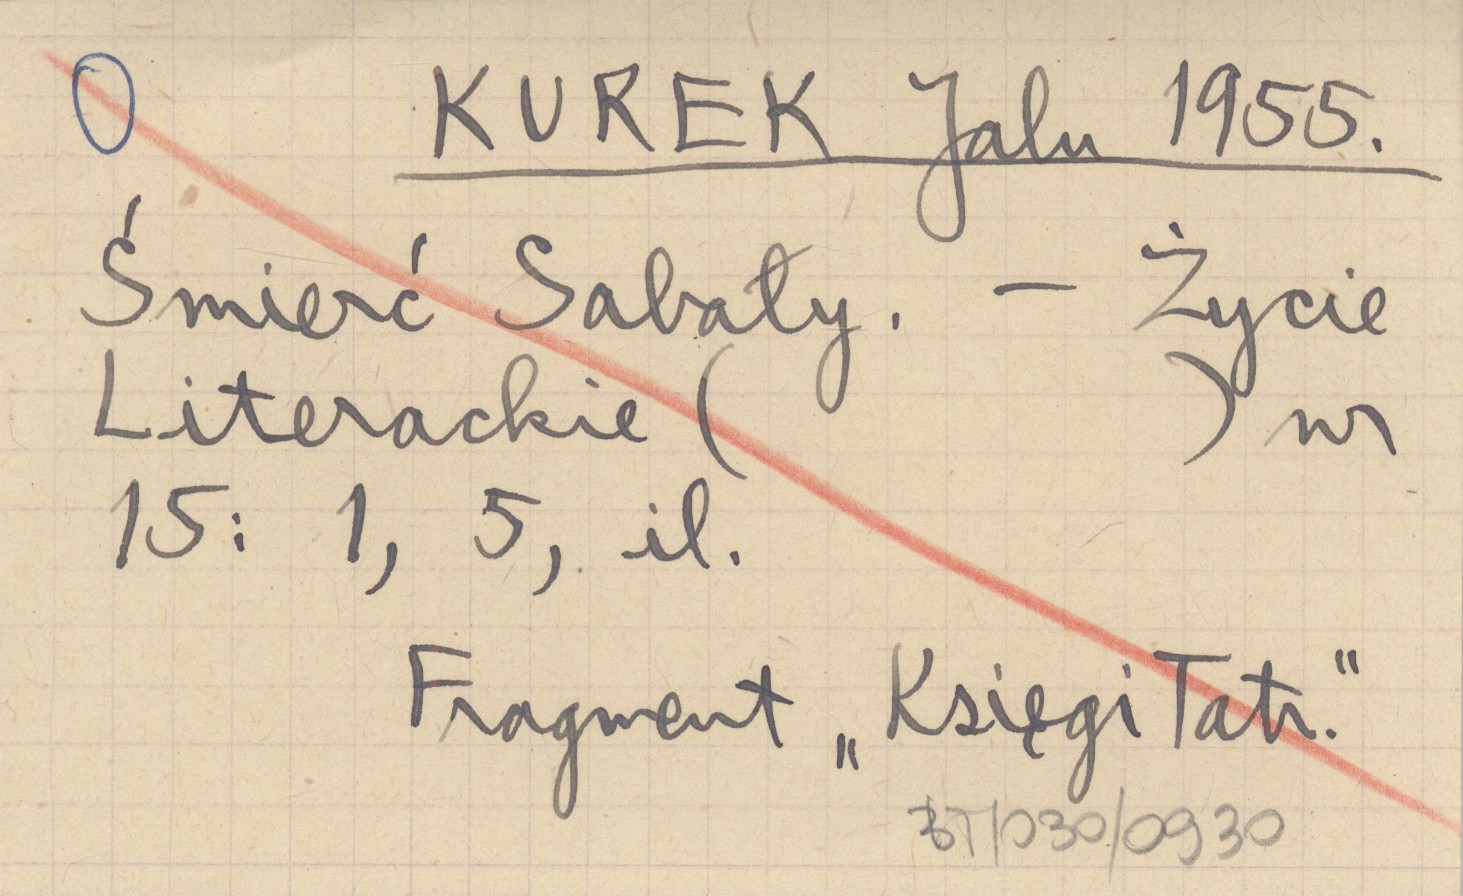 KUREK Jalu 1955.
Śmierć Sabały. – Życie
Literackie ( ) nr
15: 1, 5, il.
Fragment „Księgi Tatr."
BT/030/0930